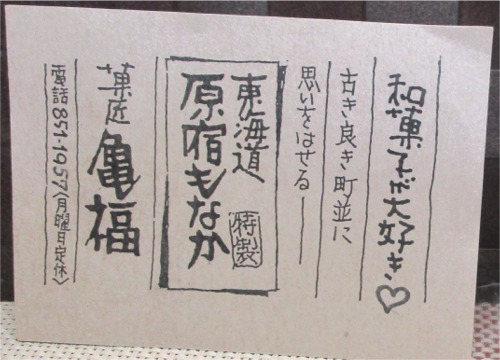 和菓子が大好き♡
古き良き町並に
思いをはせる——
東海道
原宿もなか
特製
菓匠 亀福
電話851-1957〈月曜日定休〉